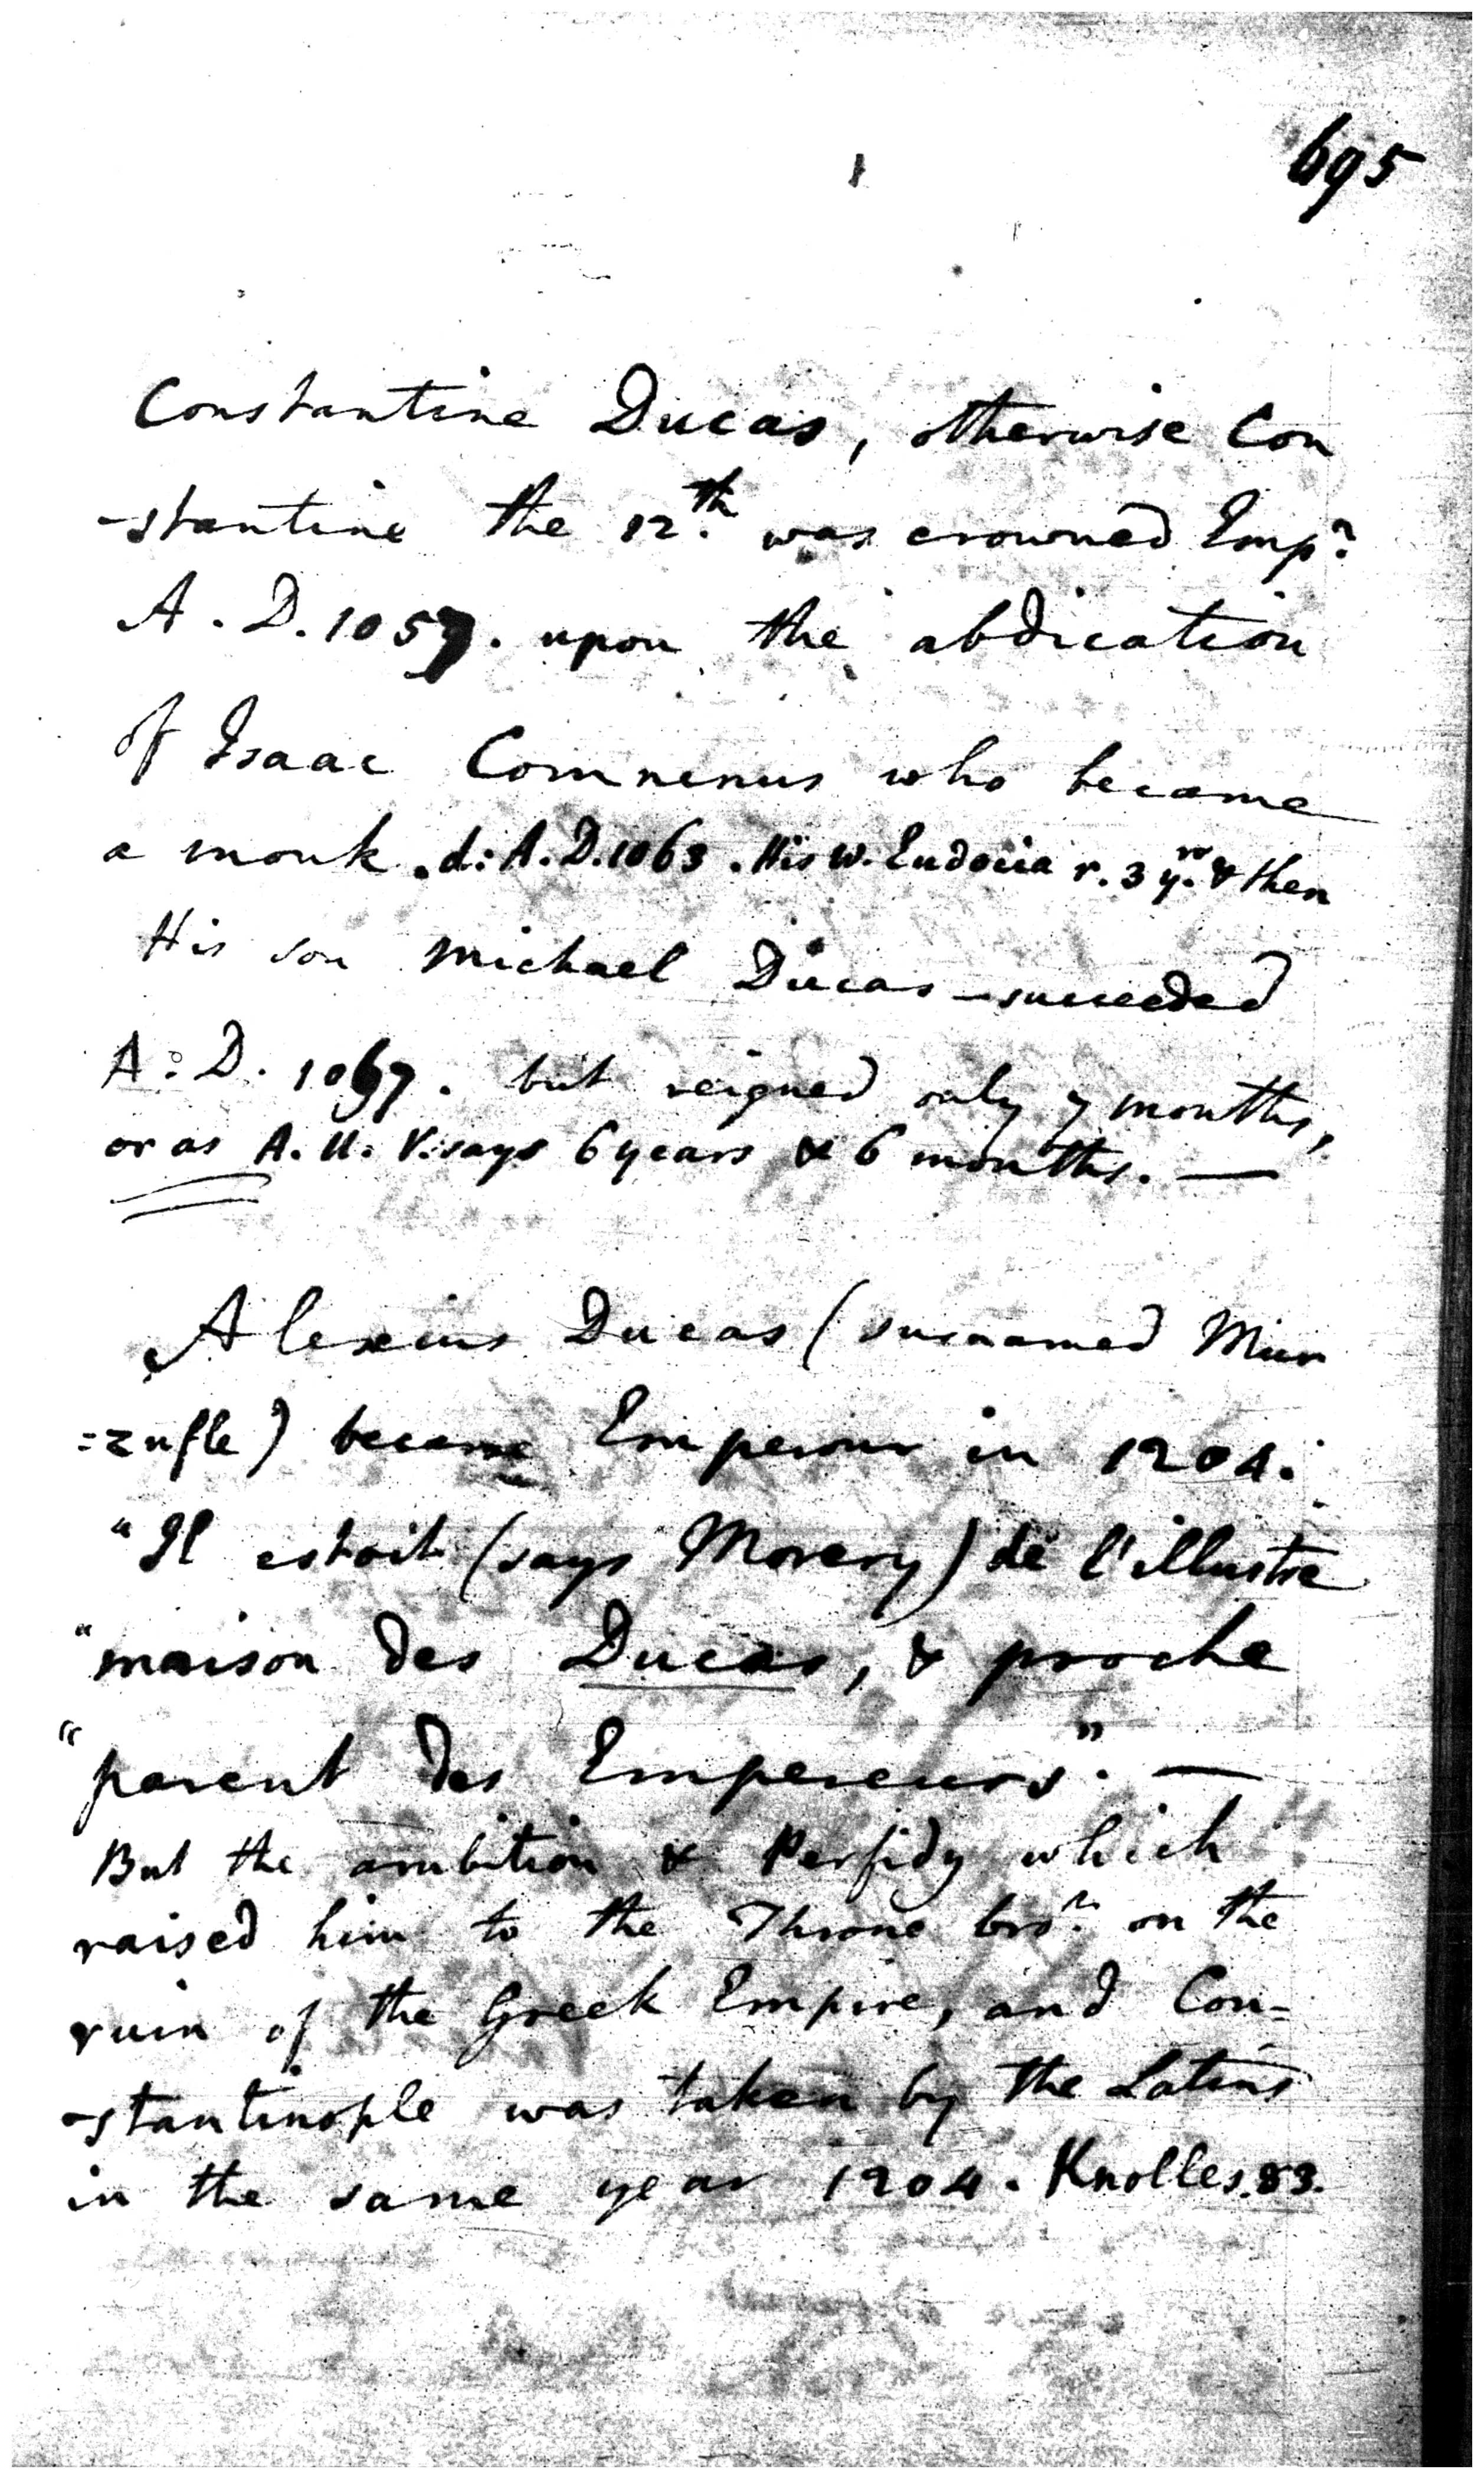 695
Constantine Ducas, otherwise Con
-stantine the 12th. was crowned Empr.
A. D. 1059. upon the abdication
of Isaac Comnenus who became
a monk. d: A. D. 1063. His w. Eudocia r. 3 yrs. & then
His son Michael Ducas succeeded
A: D. 1067. but reigned only 7 months,
or as A. U. V. says 6 years & 6 months. —
Alexius Ducas (surnamed Mur
=zufle) became Emperour in 1204.
"Il estoit (says Morery) de l'illustre
"maison des Ducas, & proche
"parent des Empereurs". —
But the ambition & Perfidy which
raised him to the Throne brot. on the
ruin of the Greek Empire, and Con=
-stantinople was taken by the Latins
in the same year 1204. Knolles. 83.